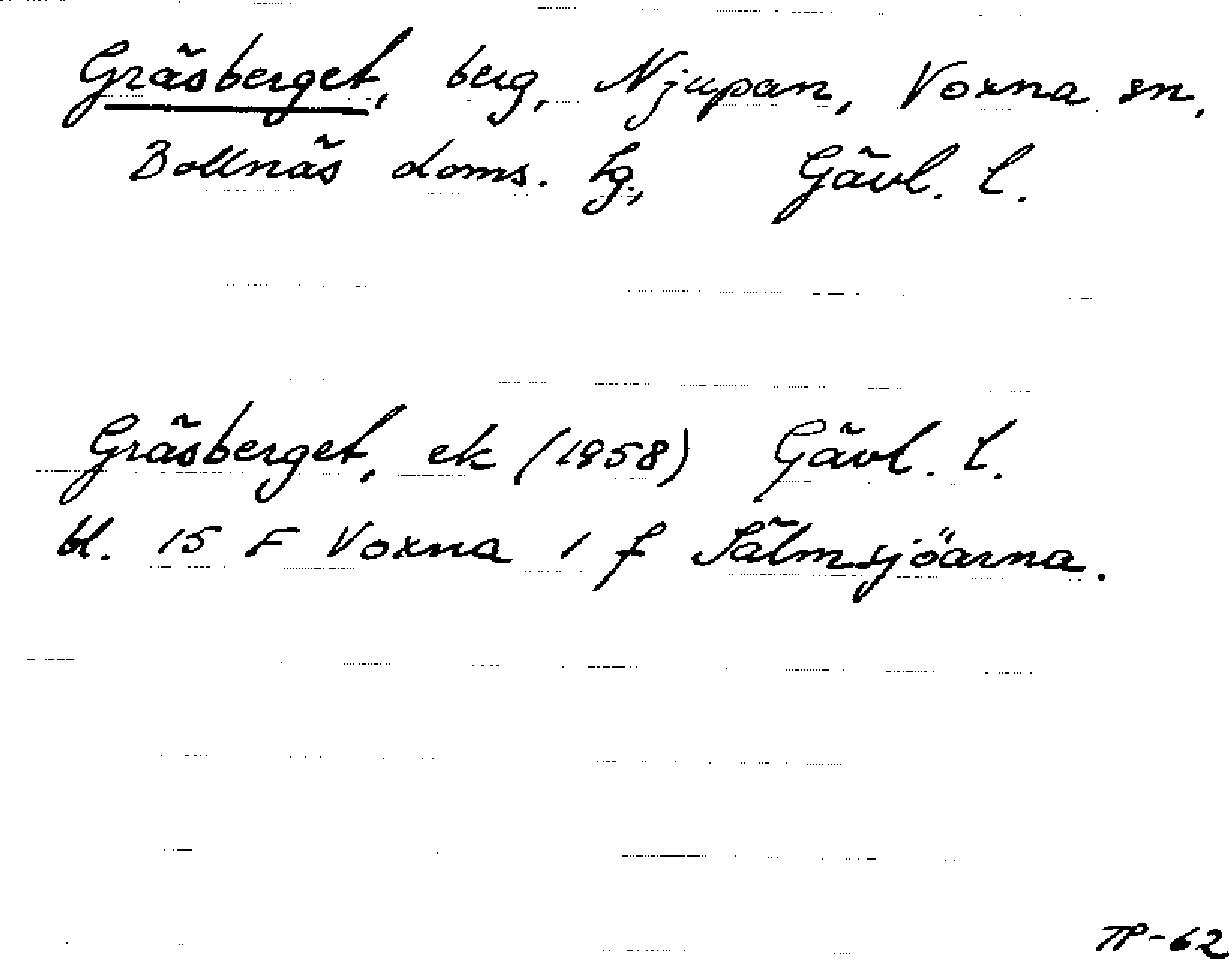 Gräsberget, berg, Njupan, Voxna sn,
Bollnäs doms. lg., Gävl. l.
Gräsberget, ek (1958) Gävl. l.
bl. 15 F Voxna 1 f Sälmsjöarna.
TP-62